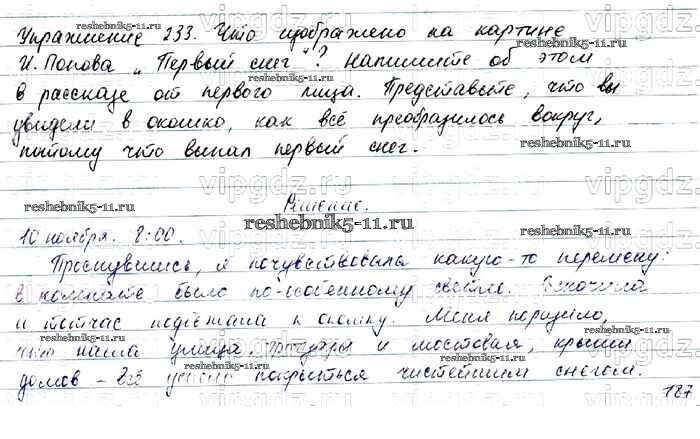 Упражнение 233. Что изображено на картине
И. Попова „Первый снег"? Напишите об этом
в рассказе от первого лица. Представьте, что вы
увидели в окошко, как всё преобразилось вокруг,
потому что выпал первый снег.
Решение.
10 ноября. 8:00.
Проснувшись, я почувствовала какую-то перемену:
в комнате было по-особенному светло. Вскочила
и тотчас подбежала к окошку. Меня поразило,
что наша улица, тротуары и мостовая, крыши
домов – всё покрыться чистейшим снегом.
187
reshebnik5-11.ru
reshebnik5-11.ru
reshebnik5-11.ru
reshebnik5-11.ru
reshebnik5-11.ru
reshebnik5-11.ru
vipgdz.ru
vipgdz.ru
vipgdz.ru